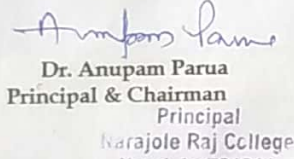 Anupam Parua
Dr. Anupam Parua
Principal & Chairman
Principal
Narajole Raj College